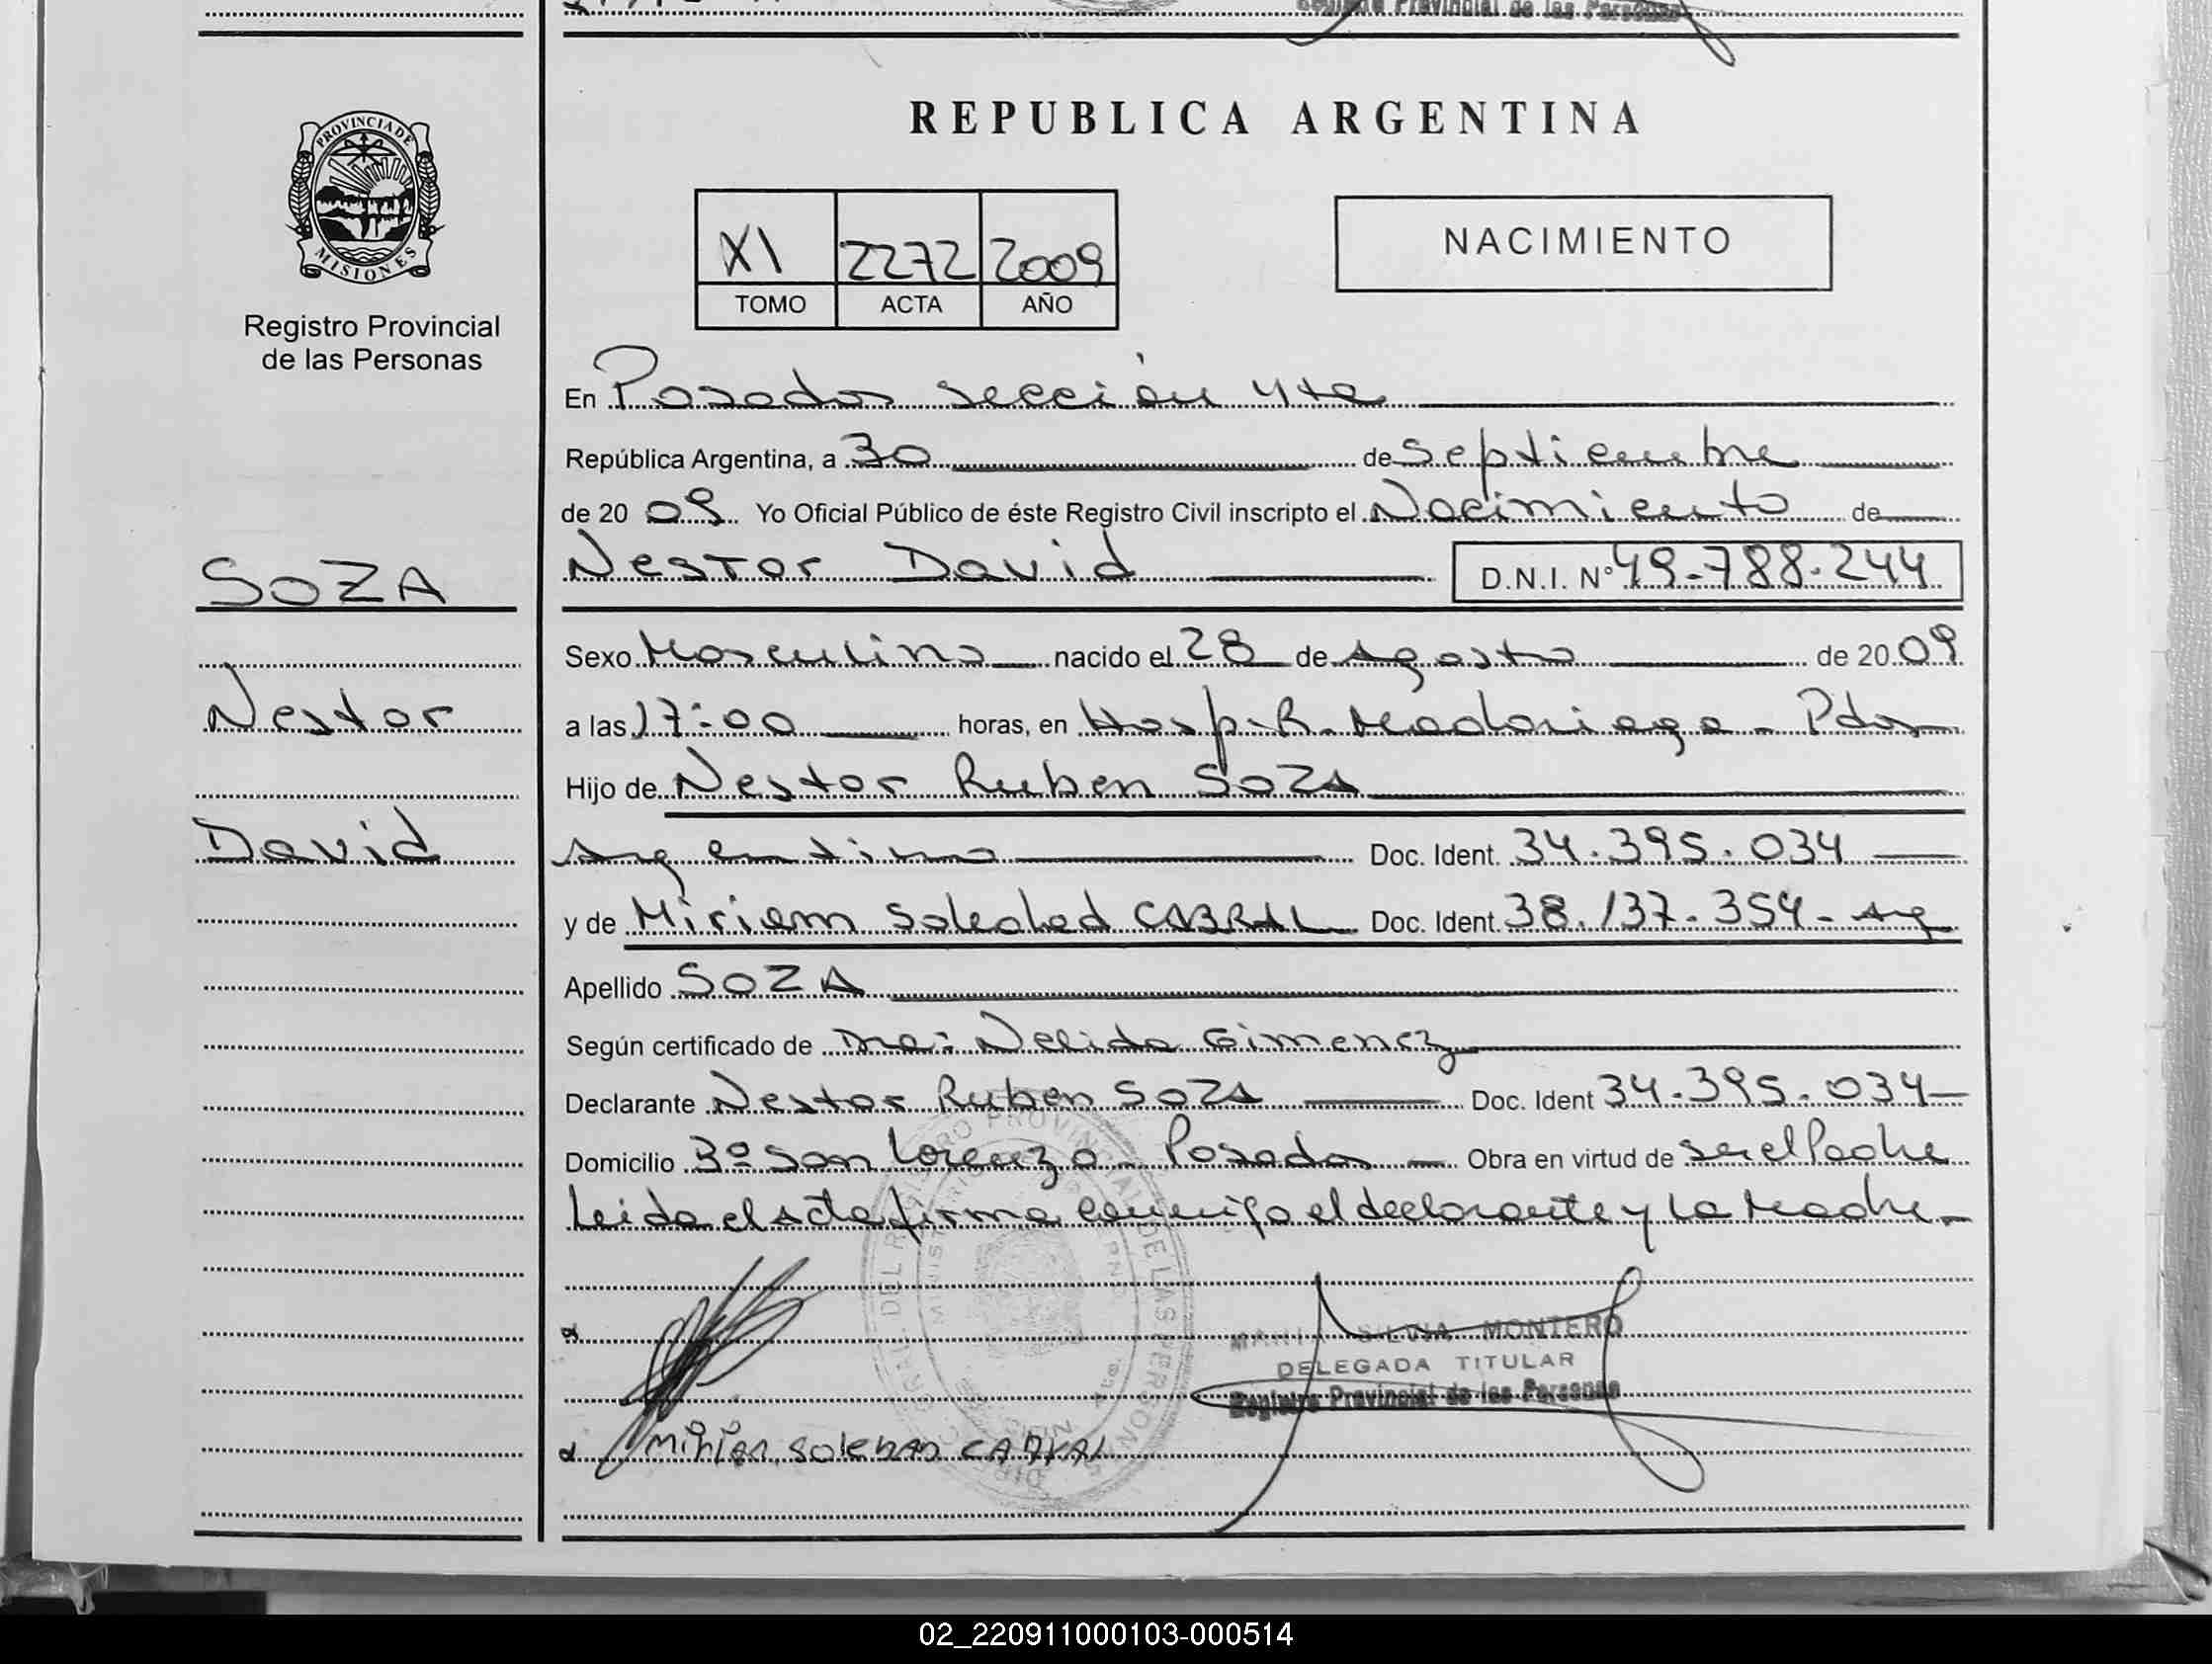 Registro Provincial de las Personas
PROVINCIA DE
MISIONES
Registro Provincial
de las Personas
SOZA
Nestor
David
REPUBLICA ARGENTINA
XI 2272 2009
TOMO ACTA AÑO
NACIMIENTO
En Posadas sección 4ta
República Argentina, a 30 de Septiembre
de 20 09 Yo Oficial Público de éste Registro Civil inscripto el Nacimiento de
Nestor David D.N.I. Nº 49.788.244
Sexo Masculino nacido el 28 de Agosto de 20 09
a las 17:00 horas, en Hosp. R. Madariaga - Pdas
Hijo de Nestor Ruben SOZA
Argentino Doc. Ident. 34.395.034
y de Miriam Soledad CABRAL Doc. Ident. 38.137.354 - Arg
Apellido SOZA
Según certificado de Dra: Nelida Gimenez
Declarante Nestor Ruben SOZA Doc. Ident 34.395.034
Domicilio Bº San Lorenzo - Posadas - Obra en virtud de ser el Padre
Leida el Acta firma conmigo el declarante y La Madre -
MARIA SILVIA MONTERO
DELEGADA TITULAR
Registro Provincial de las Personas
SOLEDAD CABRAL
02_220911000103-000514